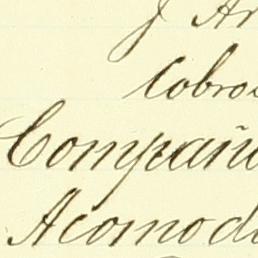 y Ar
Cobro
Compañi
Acomod